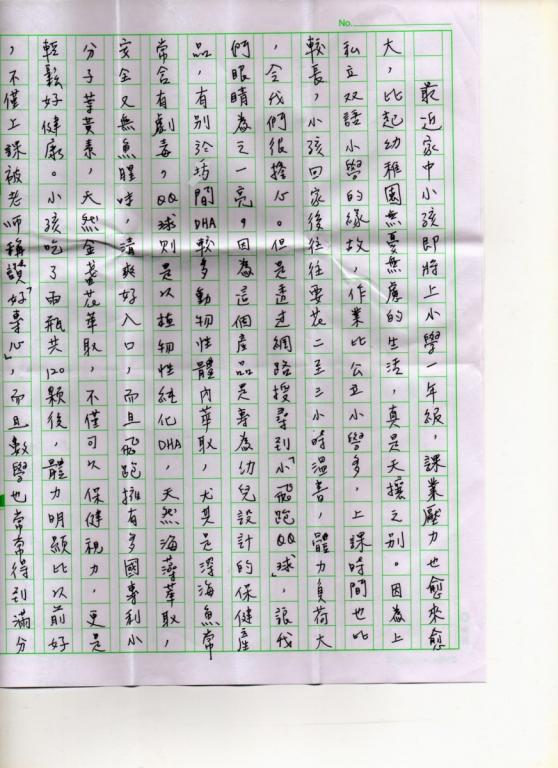 No.
最近家中小孩即將上小學一年級，課業壓力也愈來愈
大，比起幼稚園無憂無慮的生活，真是天攘之別。因為上
私立双語小學的緣故，作業比公立小學多，上課時間也比
較長，小孩回家後往往要花二至三小時溫書，體力負荷大
，令我們很擔心。但是透过網路搜尋到「小飛跑QQ球」，讓我
們眼睛為之一亮，因為這個產品是專為幼兒設計的保健產
品，有別於坊間DHA較多動物性體內萃取，尤其是深海魚常
常含有劇毒，QQ球則是以植物性純化DHA，天然海藻萃取，
安全又無魚腥味，清爽好入口，而且飛跑擁有多國專利小
分子葉黃素，天然金盞花萃取，不僅可以保健視力，更是
輕鬆好健康。小孩吃了兩瓶共120顆後，體力明顯比以前好
，不僅上課被老師稱讚「好專心」，而且數學也常常得到滿分